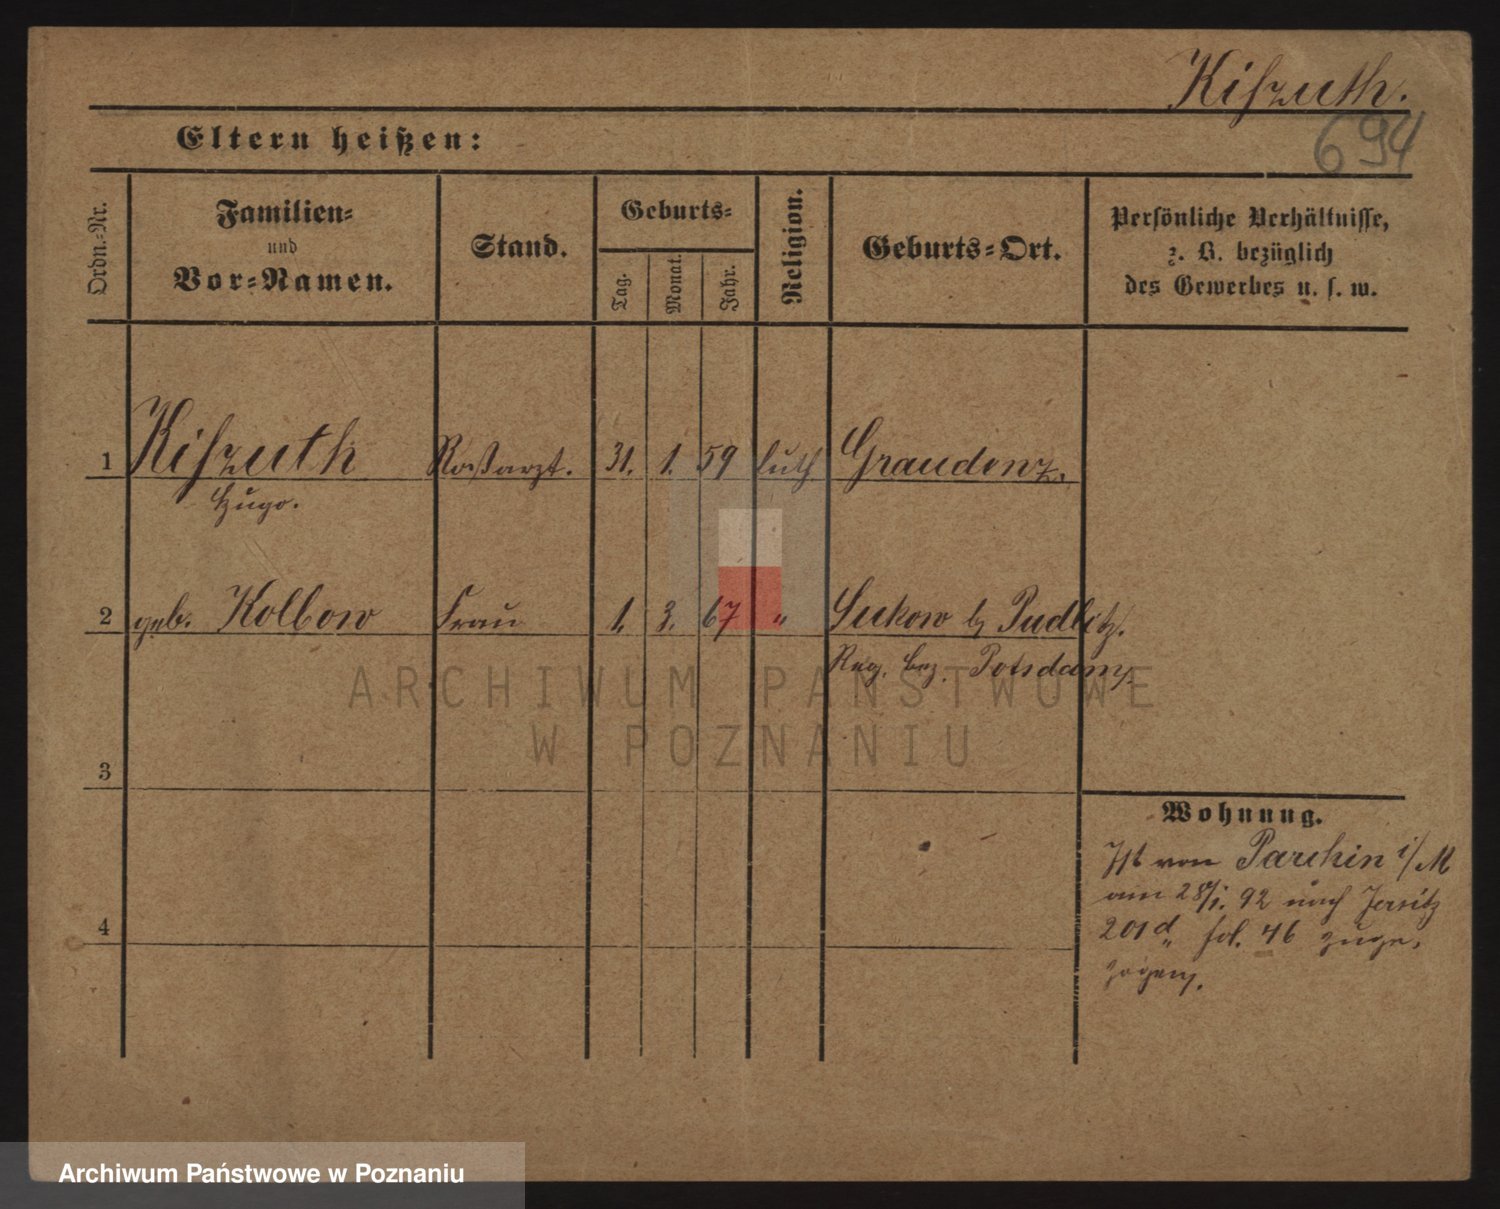 Kiszuth.
694
Eltern heißen:
Ordn.-Nr.
Familien-
und
Vor-Namen.
Stand.
Geburts-
Tag.
Monat.
Jahr.
Religion.
Geburts-Ort.
Persönliche Verhältnisse,
z. B. bezüglich
des Gewerbes u. s. w.
1 Kiszuth Roßarzt. 31. 1. 59 luth Graudenz.
Hugo.
2 geb. Kolbow Frau 1. 3. 67 " Suckow b/ Pudlitz.
Reg. bez. Potsdam.
ARCHIWUM PAŃSTWOWE
W POZNANIU
3
4
Wohnung.
Ist von Parchin i/M
am 28/1. 92 nach Jersitz
201d fol. 46 zuge-
zogen.
Archiwum Państwowe w Poznaniu